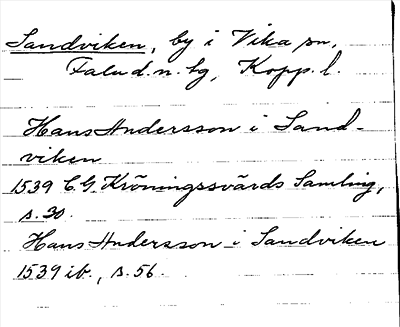 Sandviken, by i Vika sn,
Falu d.n. tg, Kopp. l.
Hans Andersson i Sand-
viken
1539 C.G. Kröningssvärds Samling,
s. 30.
Hans Andersson i Sandviken
1539 ib., s. 56.